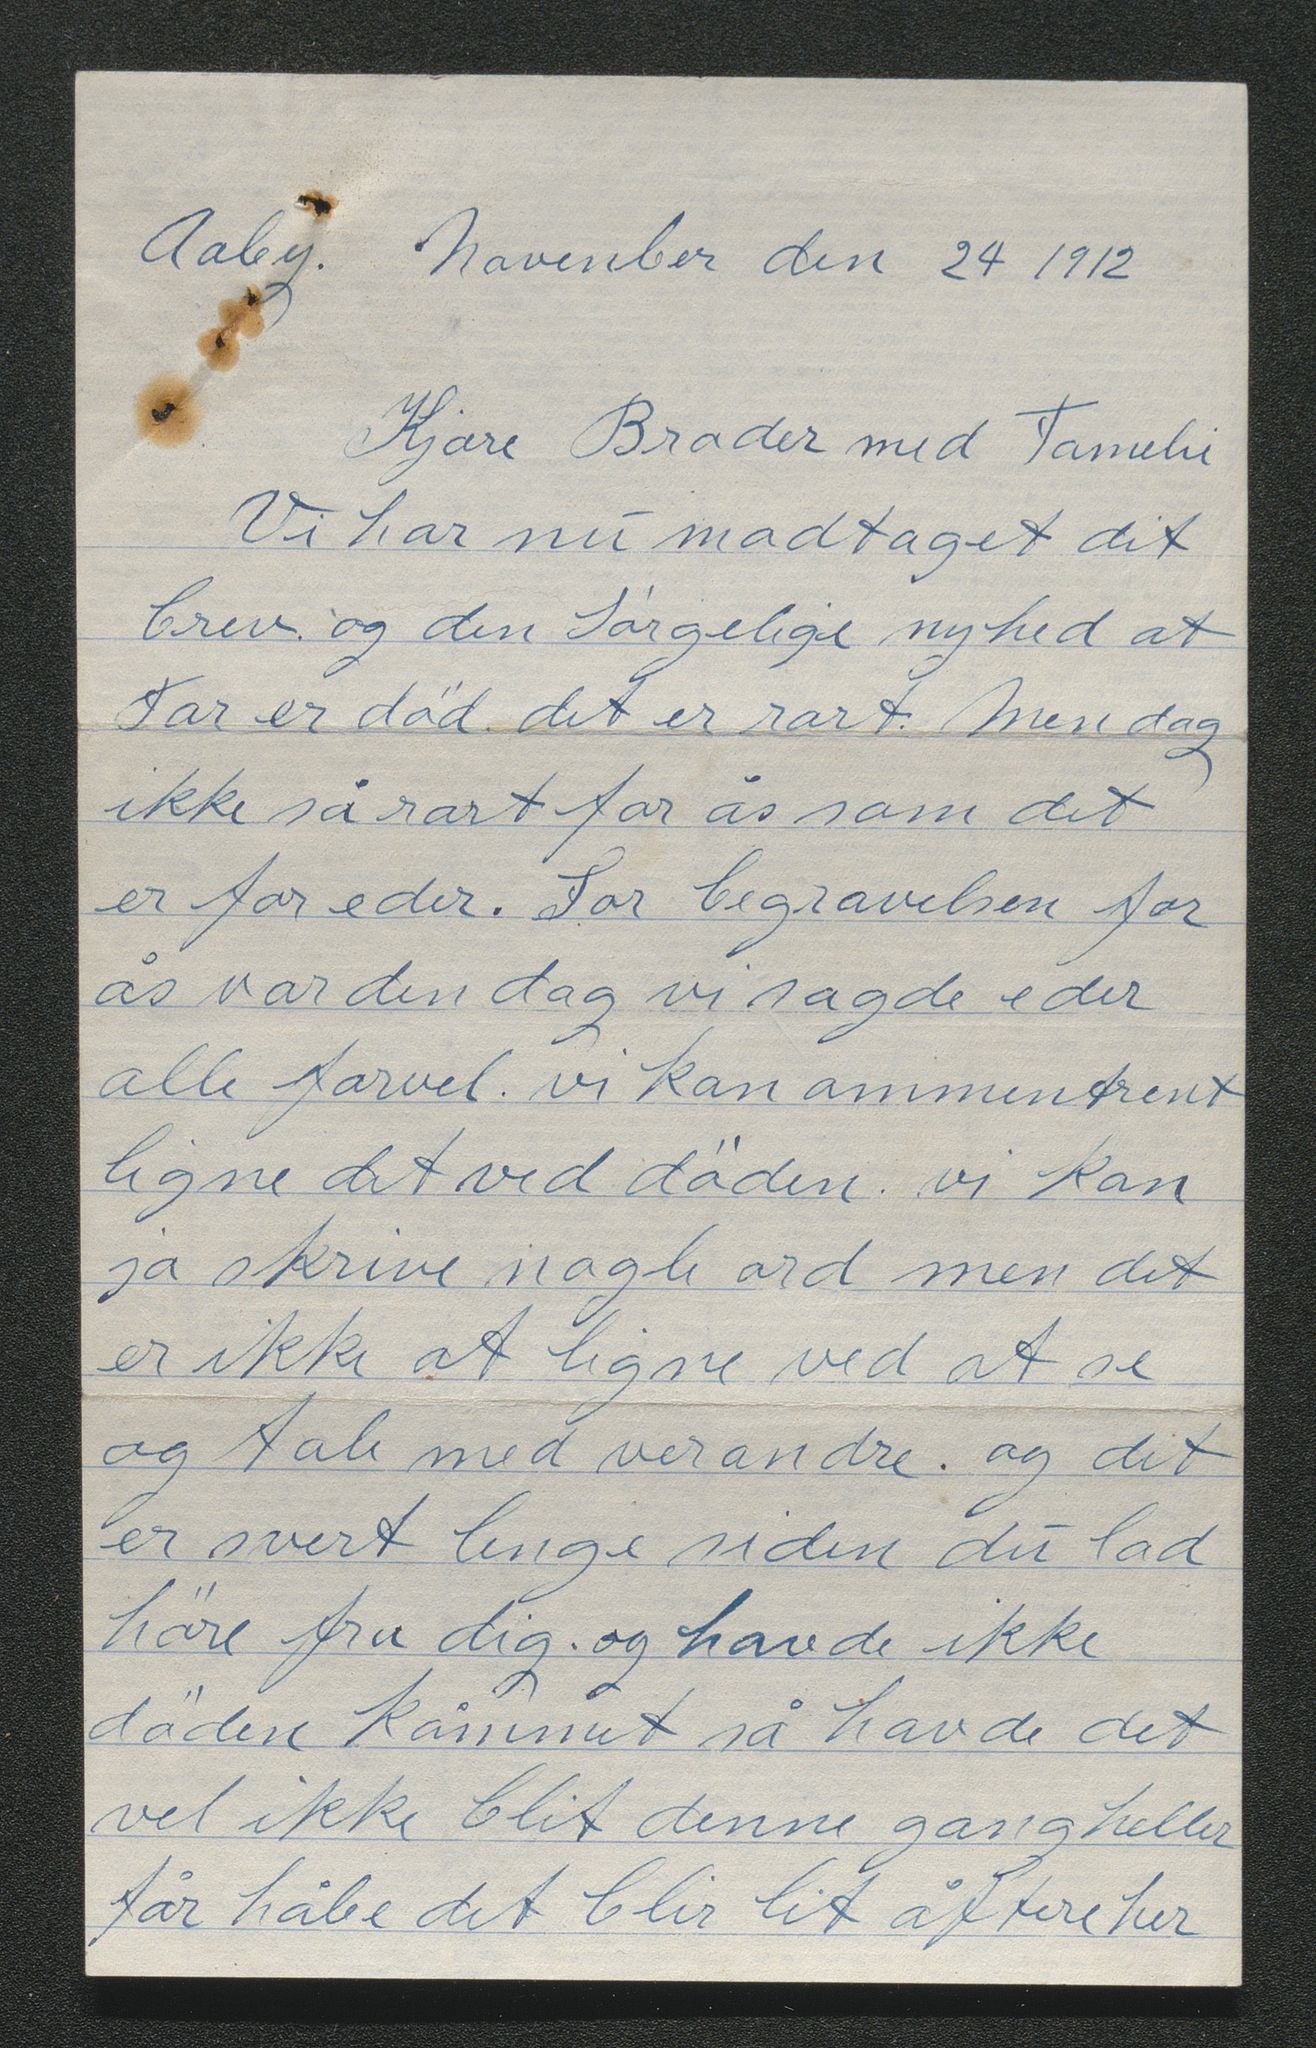 Aaby. November den 24 1912
Kjære Broder med Famelie
Vi har nu modtaget dit
brev. og den Sörgelige nyhed at
Far er död. det er rart. Men dog
ikke så rart for ås som det
er for eder. For begravelsen for
ås var den dag vi sagde eder
alle farvel. vi kan ommentrent
ligne det ved döden. vi kan
jo skrive nogle ord men det
er ikke at ligne ved at se
og tale med verandre. og det
er svert lenge siden du lod
höre fra dig. og havde ikke
döden kåmmet så havde det
vel ikke blit denne gang heller
får håbe det blir lit åftere her